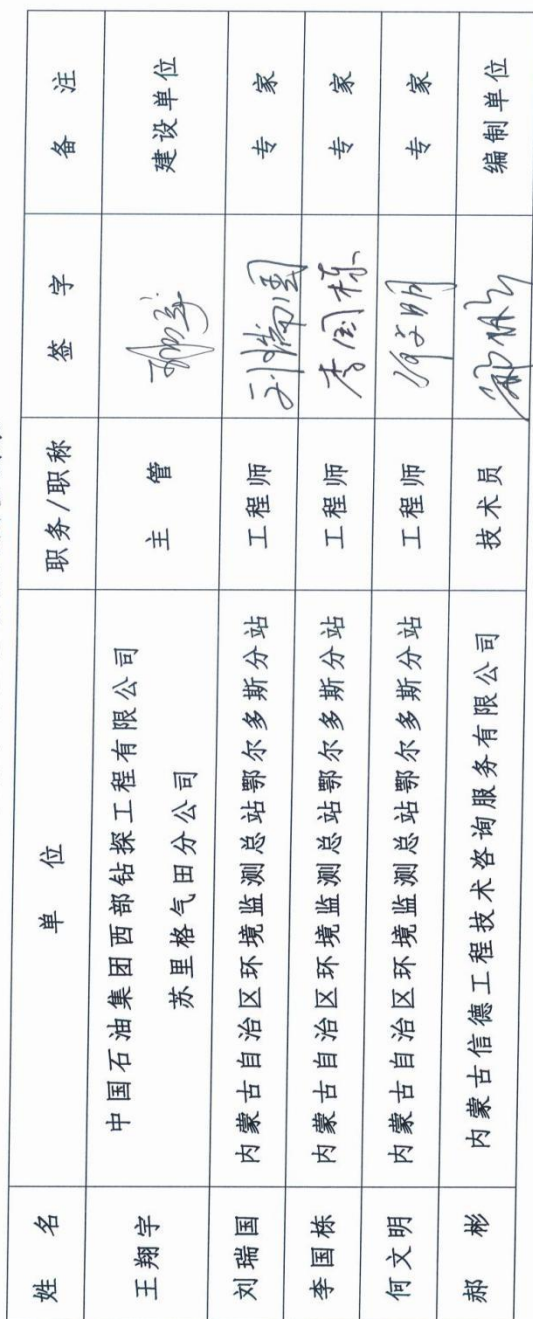 姓 名 单 位 职务/职称 签 字 备 注
王翔宇 中国石油集团西部钻探工程有限公司 主 管 建设单位
苏里格气田分公司
刘瑞国 内蒙古自治区环境监测总站鄂尔多斯分站 工程师 刘瑞国 专 家
李国栋 内蒙古自治区环境监测总站鄂尔多斯分站 工程师 李国栋 专 家
何文明 内蒙古自治区环境监测总站鄂尔多斯分站 工程师 何文明 专 家
郝 彬 内蒙古信德工程技术咨询服务有限公司 技术员 编制单位